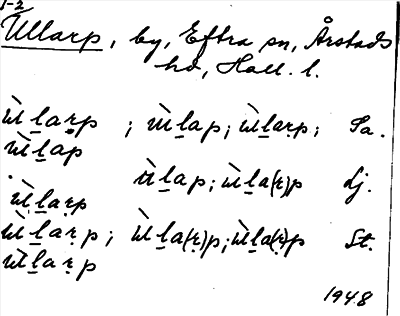 1-2
Ullarp, by, Eftra sn, Årstads
hd, Hall. l.
ùl̲aṛp ; ùl̲ap; ùl̲aṛp; Sa.
ùl̲ap
ùl̲ap; ùl̲a(ṛ)p Lj.
ùl̲aṛp
ùl̲aṛp; ùl̲a(ṛ)p; ùl̲a(ṛ)p St.
ùl̲aṛp
1948